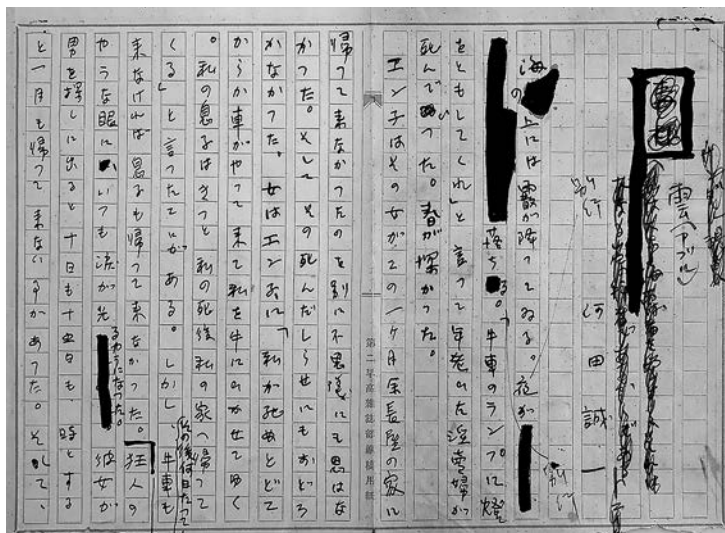 雲(アブル)
別行 何田誠一
別行
海の上には靄が降つてゐる。夜が
落ちる。「牛車のランプに燈
をともしてくれ」と言つて年老いた淫売婦が
死んでゐつた。春が深かつた。
エン子はその女がこの一ケ月余長屋の家に
帰つて来なかつたのを別に不思議にも思はな
かつた。そして その死んだしらせにもおどろ
かなかつた。女はエン子に、「私が死ぬとどこ
からか車がやつて来て私を牛にひかせてゆく
。私の息子はきつと私の死後私の家へ帰つて
くる」と言つたことがある。しかし
その後何日たつても 牛車も
来なければ 息子も帰つて来なかつた。狂人の
やうな眼に いつも涙が光
るやうになつた。 彼女が
男を探しに出ると十日も十五日も、時とする
と一月も帰つて来ない事があつた。そして、
第二早高雑誌部原稿用紙